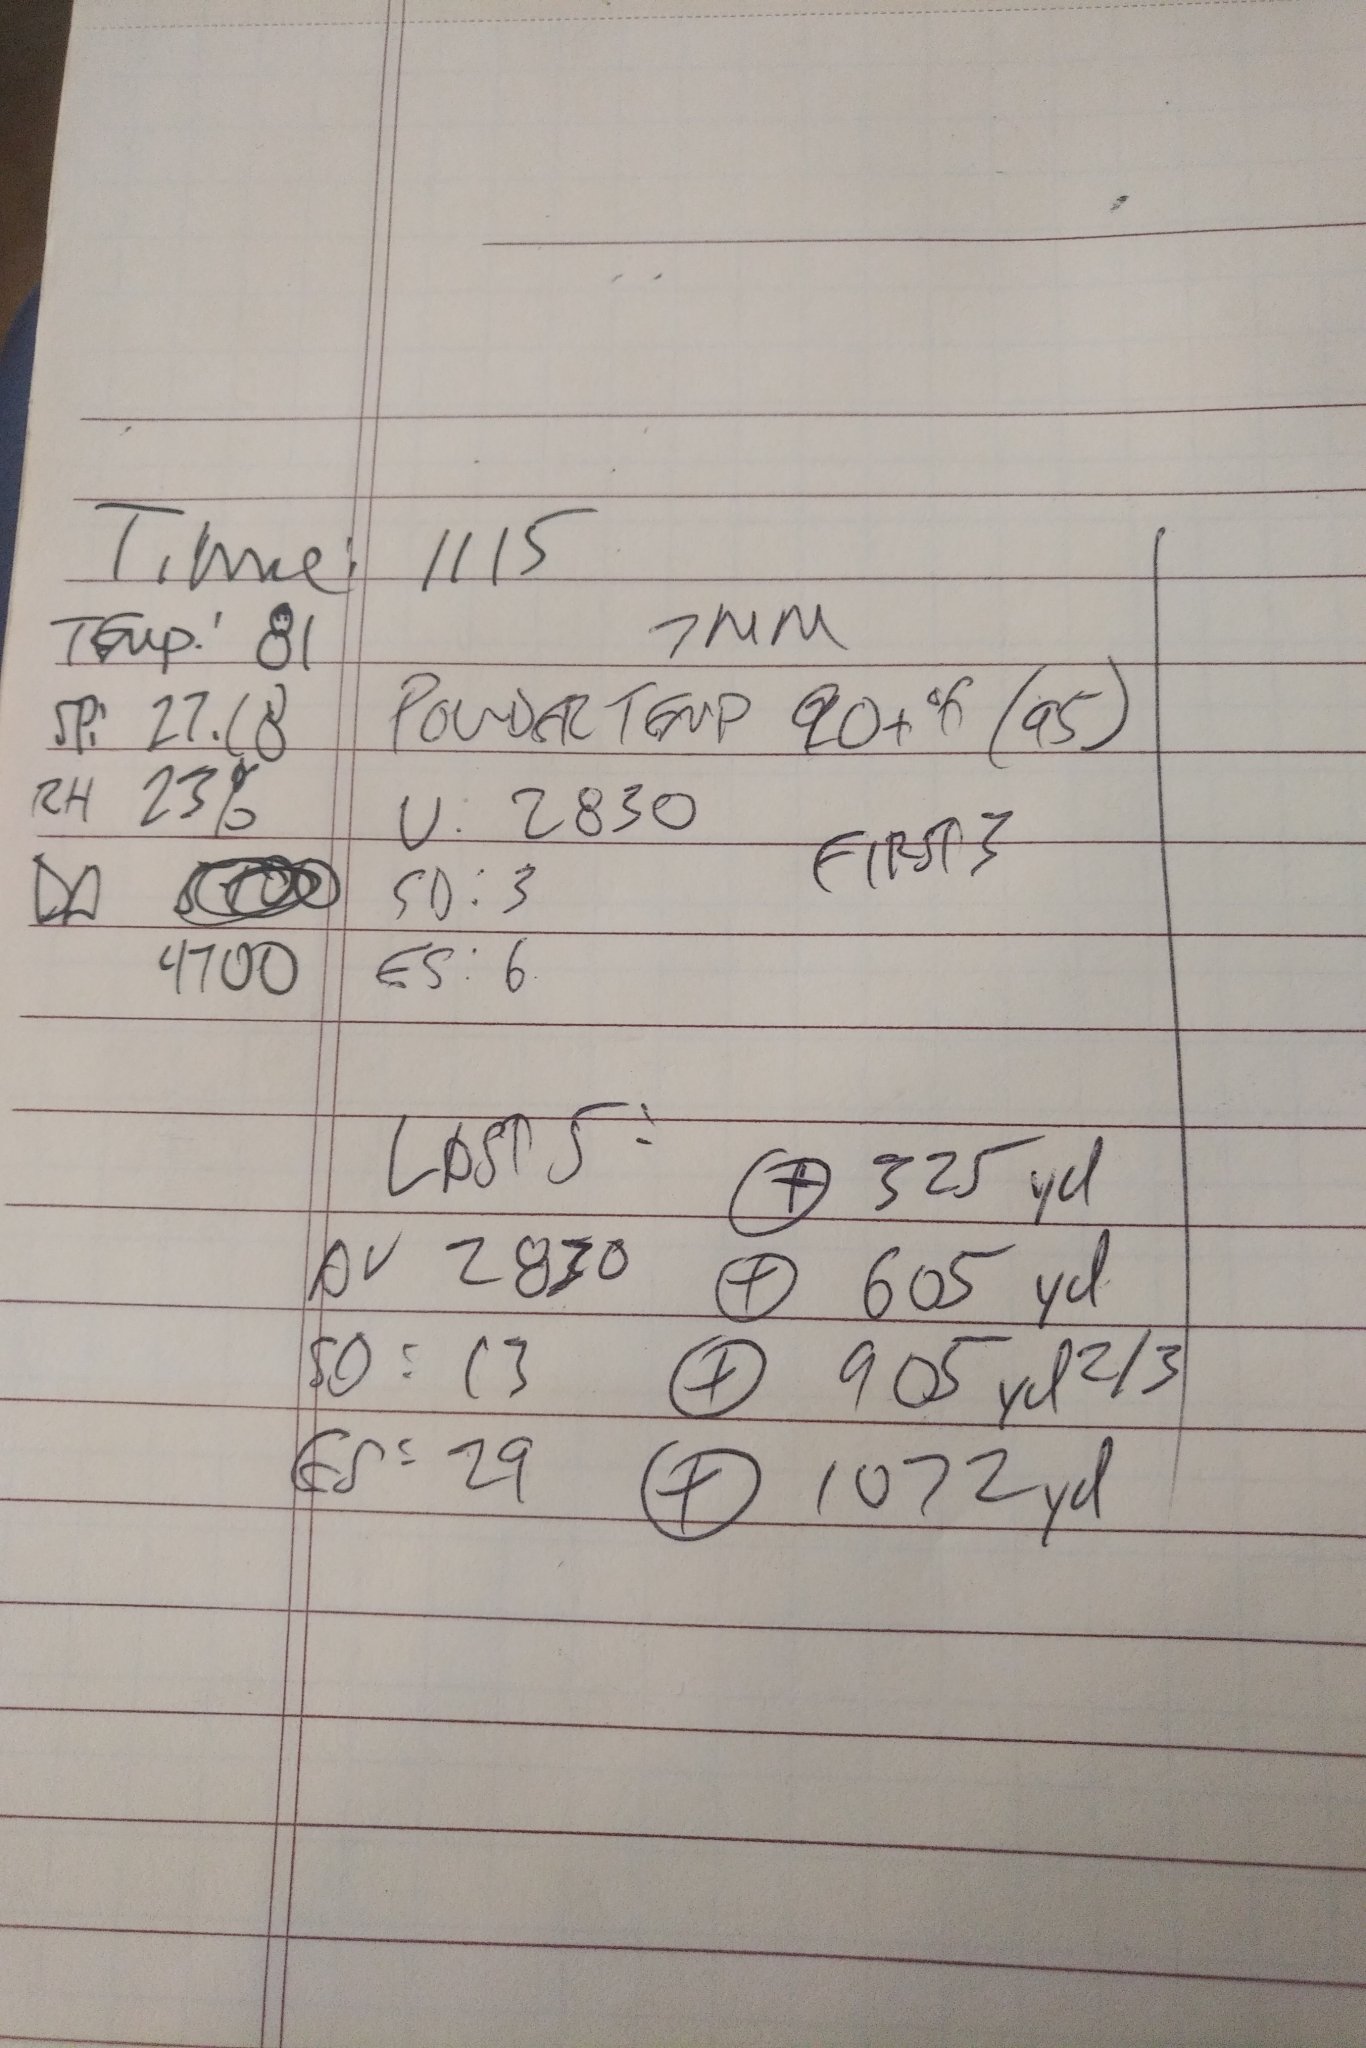 Time: 1115
TEMP: 81
7MM
SP: 27.18
POWDER TEMP 90+°F (95)
RH 23%
V: 2830
FIRST 3
DA
SD: 3
4700
ES: 6
LAST 5:
⊕ 325 yd
AV 2830
⊕ 605 yd
SD: 13
⊕ 905 yd 2/3
ES: 29
⊕ 1072 yd